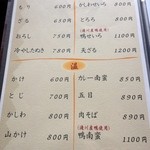 もり 600円
ざる 650円
おろし 750円
冷やしたぬき 750円
かしわせいろ 900円
とろろ 800円
鴨せいろ 1150円
天ざる 1200円
温
かけ 600円
とじ 700円
かしわ 800円
山かけ 800円
カレー南蛮 850円
五目 890円
肉そば 890円
鴨南蛮 1100円